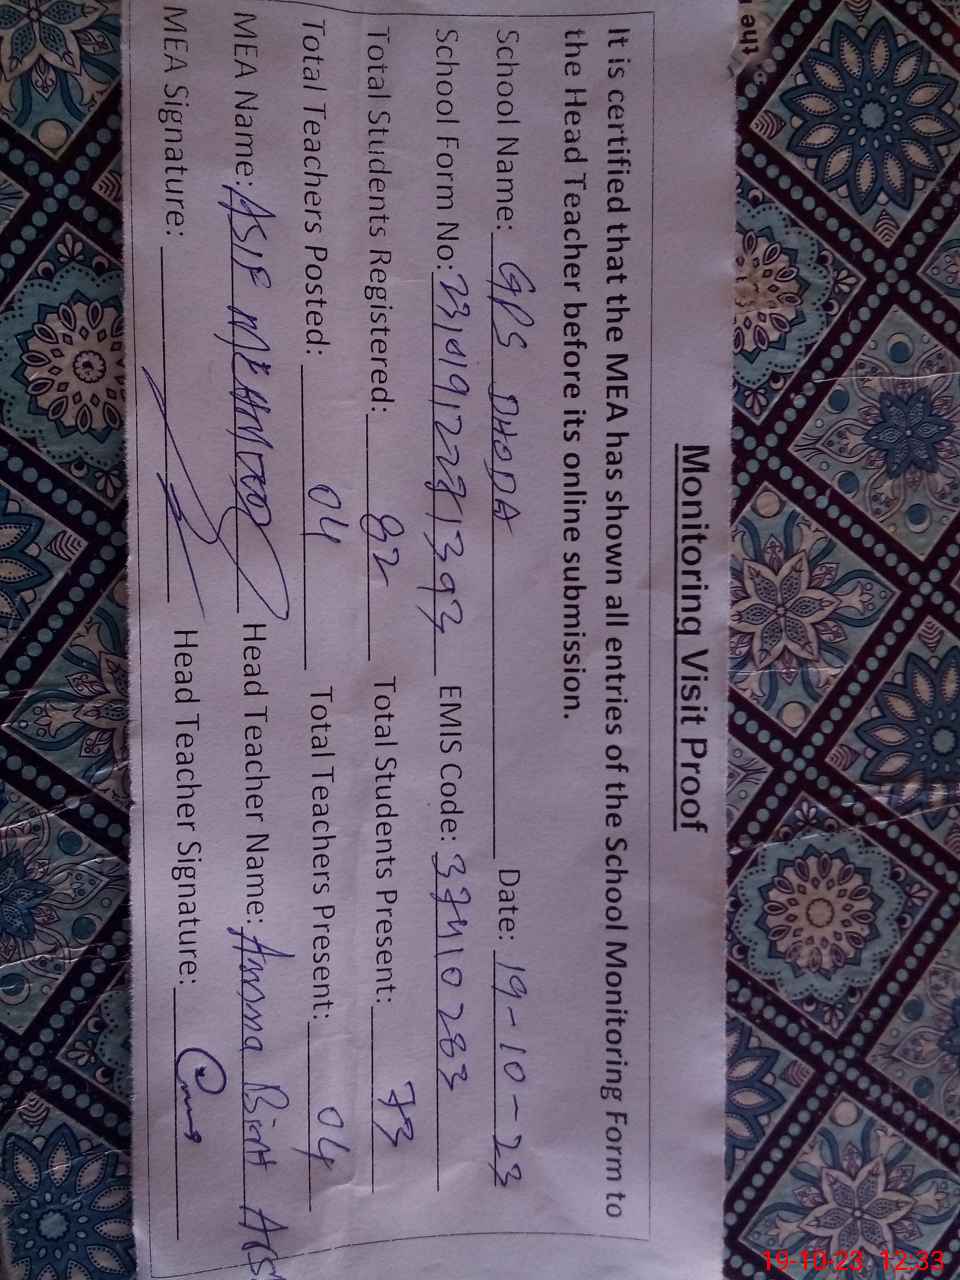 the
Monitoring Visit Proof
It is certified that the MEA has shown all entries of the School Monitoring Form to
the Head Teacher before its online submission.
School Name: GPS DHODA Date: 19-10-23
School Form No: EMIS Code:
Total Students Registered: 82 Total Students Present: 73
Total Teachers Posted: 04 Total Teachers Present: 04
MEA Name: ASIF MEHMOOD Head Teacher Name: Amna Bint
MEA Signature: Head Teacher Signature:
19-10-23 12,33